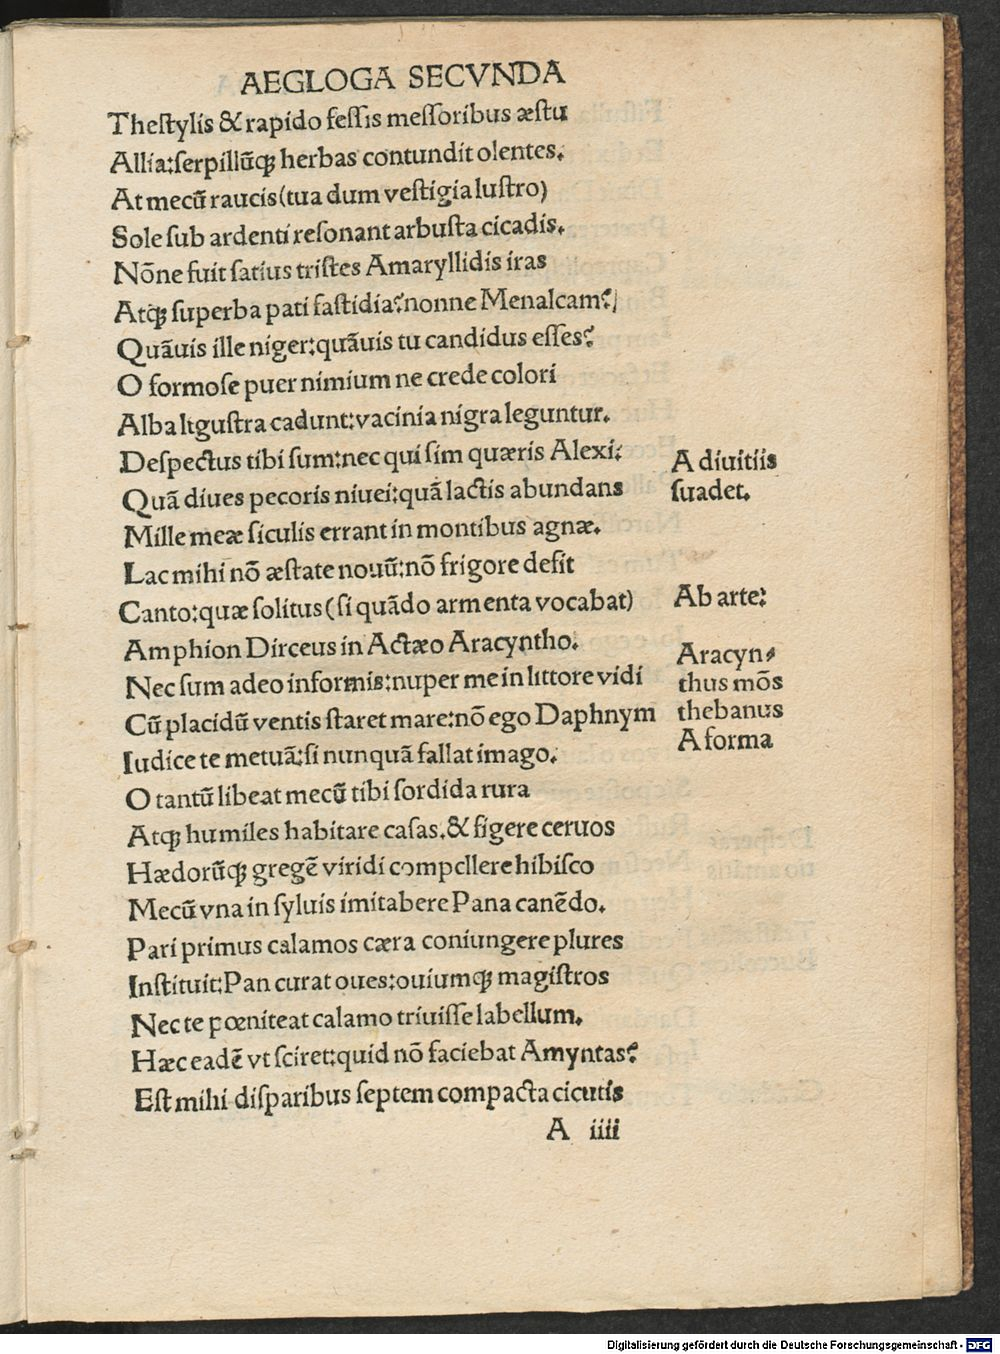 AEGLOGA SECVNDA
Theſtylis & rapido feſſis meſſoribus æſtu
Allia:ſerpillũqꝫ herbas contundit olentes.
At mecũ raucis(tua dum veſtigia luſtro)
Sole ſub ardenti reſonant arbuſta cicadis.
Nõne fuit ſatius triſtes Amaryllidis iras
Atqꝫ ſuperba pati faſtidia?nonne Menalcam?
Quãuis ille niger:quãuis tu candidus eſſes?
O formoſe puer nimium ne crede colori
Alba liguſtra cadunt:vacinia nigra leguntur.
Deſpectus tibi ſum:nec qui ſim quæris Alexi:
A diuitiis
Quã diues pecoris niuei:quã lactis abundans
ſuadet.
Mille meæ ſiculis errant in montibus agnæ.
Lac mihi nõ æſtate nouũ:nõ frigore defit
Canto:quæ ſolitus(ſi quãdo armenta vocabat)
Ab arte:
Amphion Dirceus in Actæo Aracyntho.
Aracyn⸗
Nec ſum adeo informis:nuper me in littore vidi
thus mõs
Cũ placidũ ventis ſtaret mare:nõ ego Daphnym
thebanus
Iudice te metuã:ſi nunquã fallat imago.
A forma
O tantũ libeat mecũ tibi ſordida rura
Atqꝫ humiles habitare caſas.& figere ceruos
Hædorũqꝫ gregẽ viridi compellere hibiſco
Mecũ vna in ſyluis imitabere Pana canẽdo.
Pari primus calamos cæra coniungere plures
Inſtituit:Pan curat oues:ouiumqꝫ magiſtros
Nec te pœniteat calamo triuiſſe labellum.
Hæc eadẽ vt sciret:quid nõ faciebat Amyntas?
Eſt mihi diſparibus ſeptem compacta cicutis
A iiii
Digitalisierung gefördert durch die Deutsche Forschungsgemeinschaft - DFG